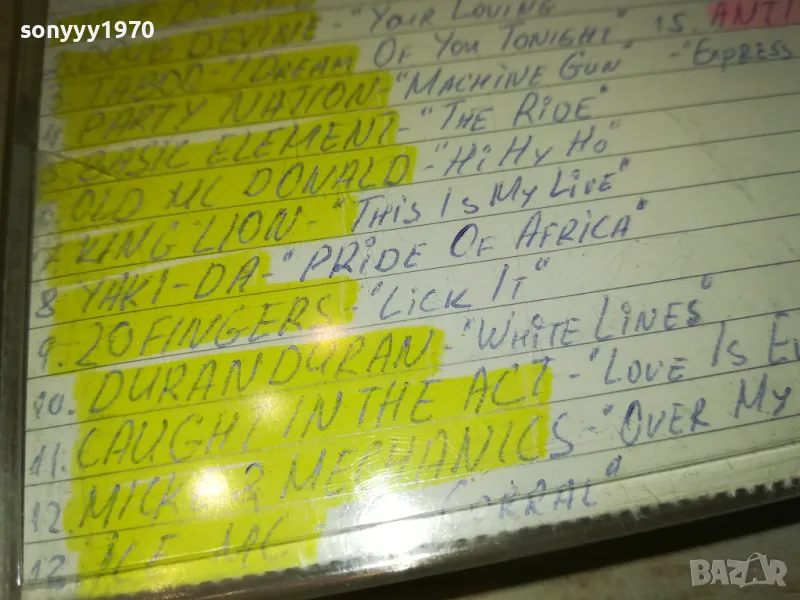 sonyyy1970
2. DOUG DEVINE - "YOUR LOVING
3. TABOO - "I DREAM OF YOU TONIGHT" 15. ANTI
4 PARTY NATION - "MACHINE GUN" - "EXPRESS
5 BASIC ELEMENT - "THE RIDE"
6 OLD MC DONALD - "HI HY HO"
7 KING LION - "THIS IS MY LIVE"
8 YAKI-DA - "PRIDE OF AFRICA"
9. 20 FINGERS - "LICK IT"
10. DURAN DURAN - "WHITE LINES"
11. CAUGHT IN THE ACT - "LOVE IS EV
12. MIKE & MECHANICS - "OVER MY
13. ICE MC CORRAL"
BAZAR